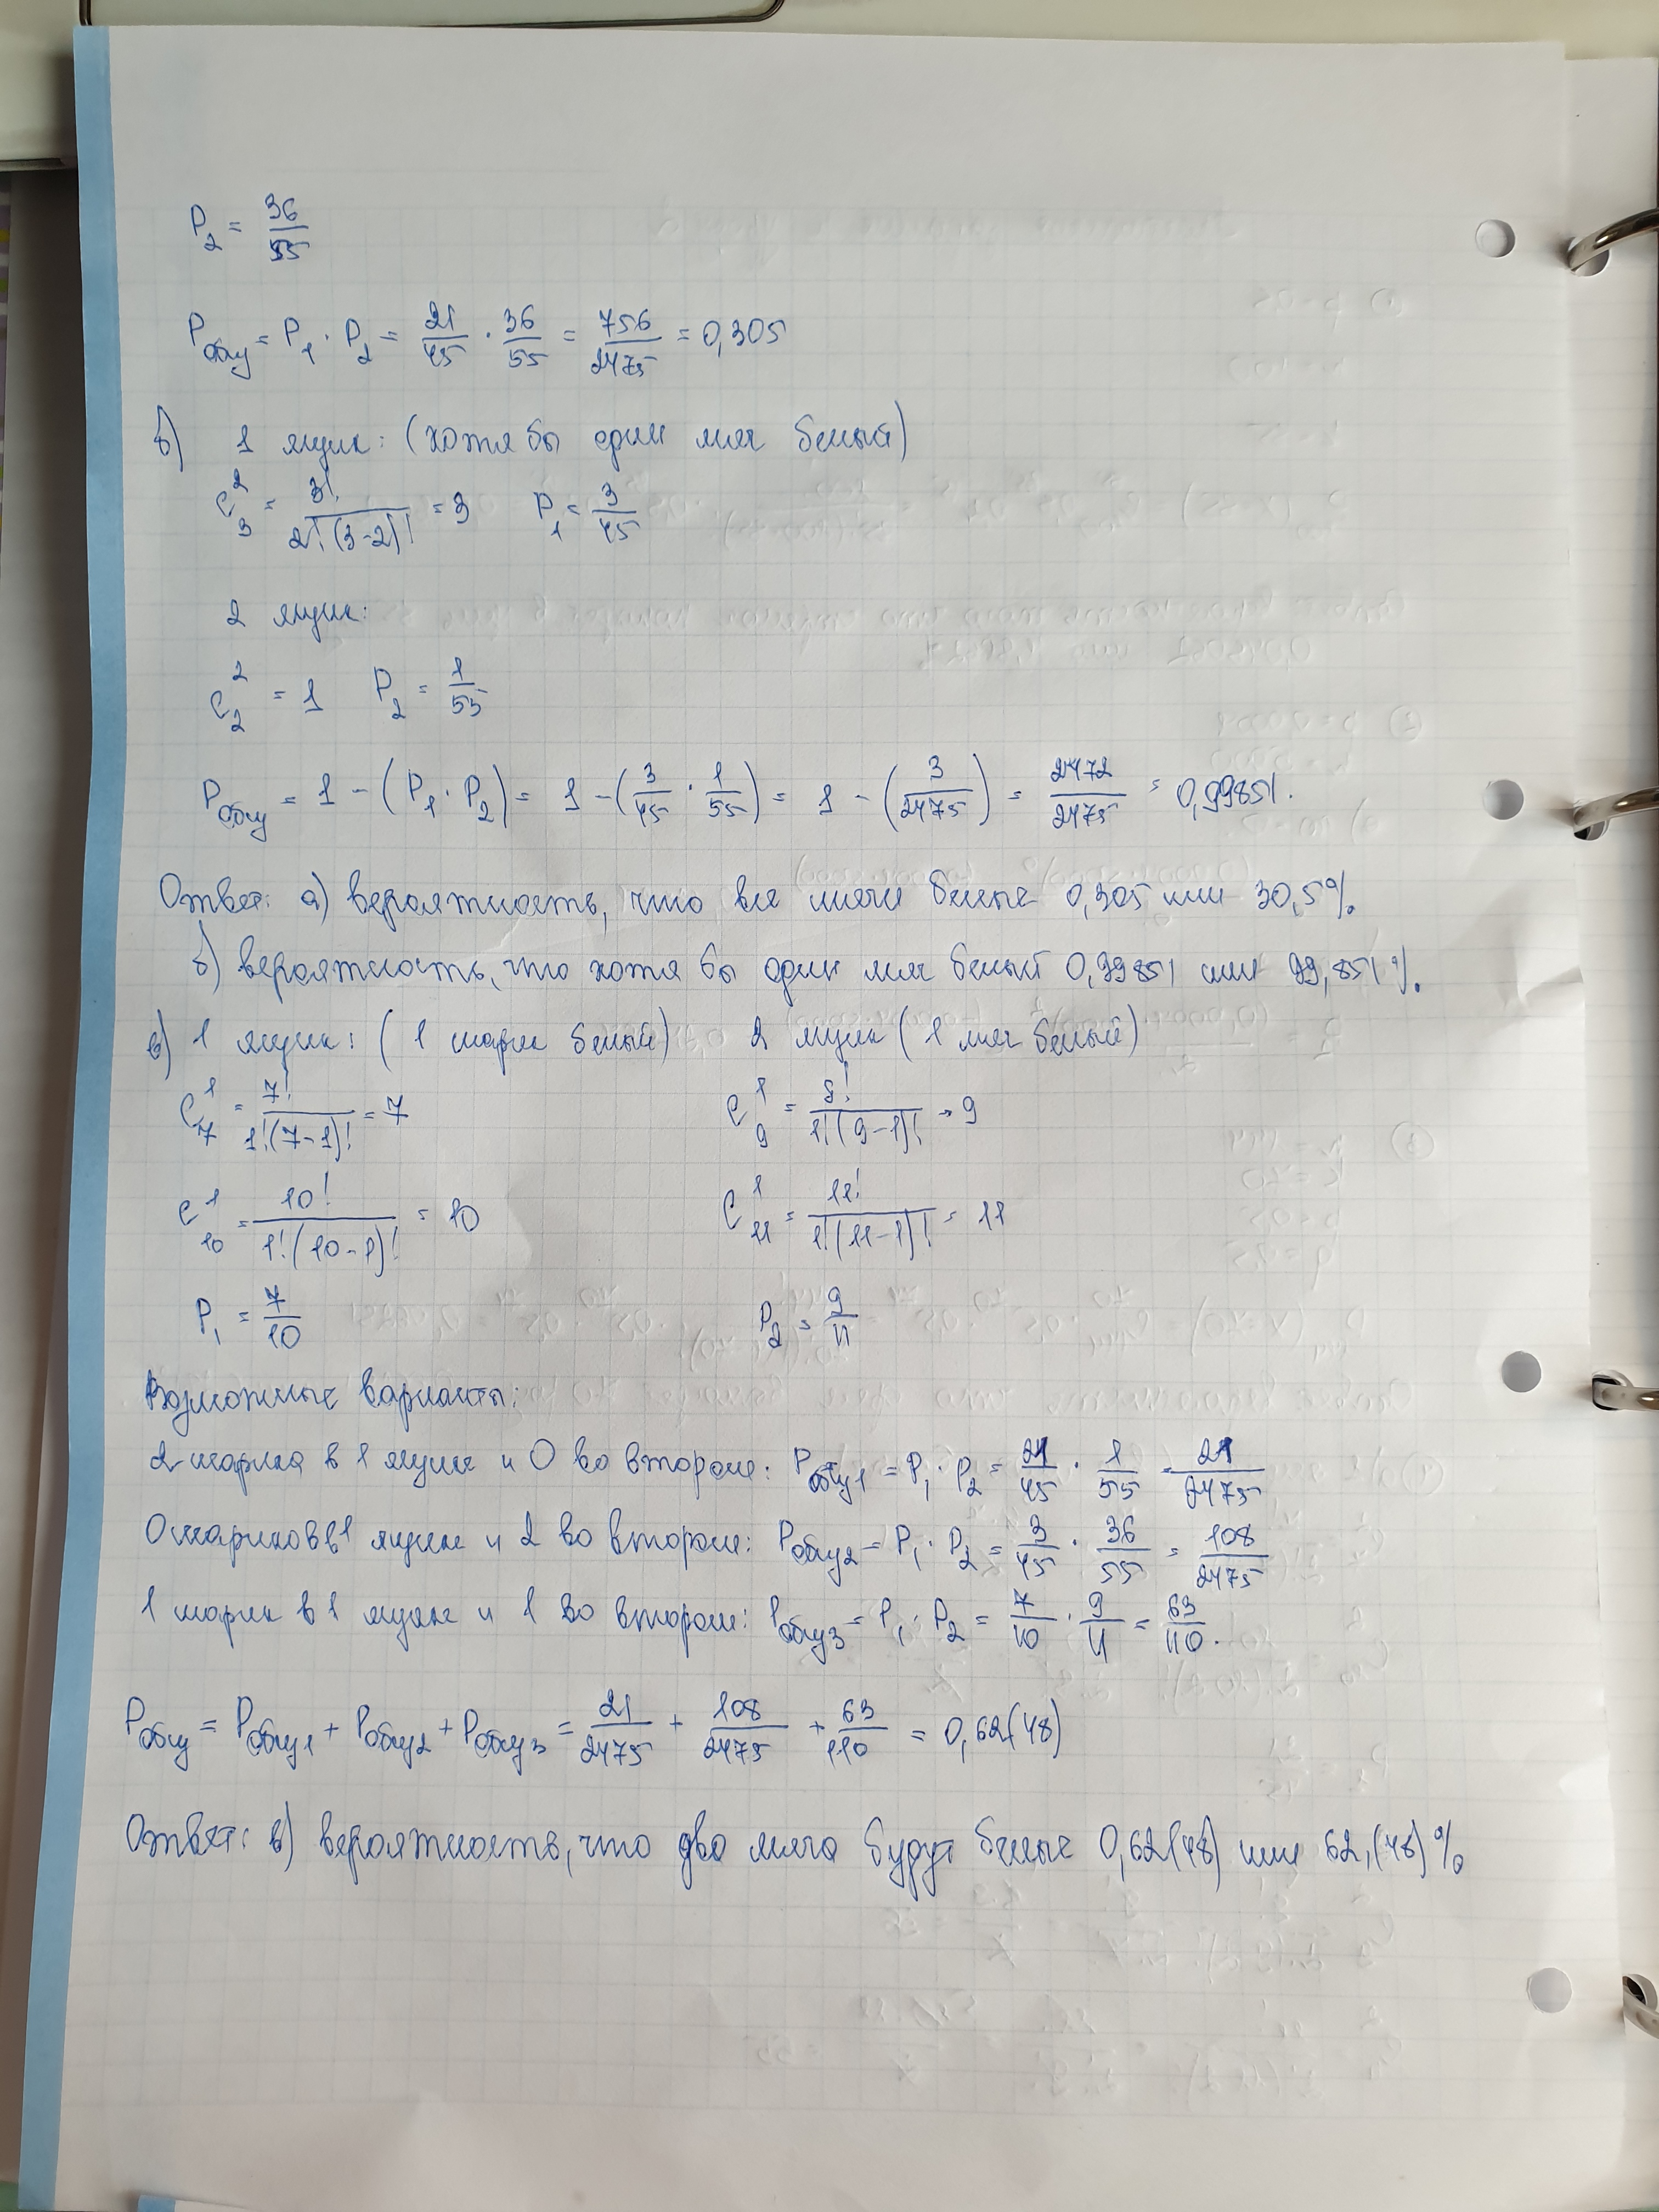 P₂ = 36/55
Pобщ = P₁ · P₂ = 21/45 · 36/55 = 756/2475 = 0,305
б) 1 ящик: (хотя бы один мяч белый)
C₃² = 3!/2!(3-2)! = 3 P₁ = 3/45
2 ящик:
C₂² = 1 P₂ = 1/55
Pобщ = 1 - (P₁ · P₂) = 1 - (3/45 · 1/55) = 1 - (3/2475) = 2472/2475 = 0,99851.
Ответ: а) вероятность, что все мячи белые 0,305 или 30,5%.
б) вероятность, что хотя бы один мяч белый 0,99851 или 99,851%.
в) 1 ящик: (1 шарик белый) 2 ящик (1 мяч белый)
C₇¹ = 7!/1!(7-1)! = 7 C₉¹ = 9!/1!(9-1)! = 9
C₁₀¹ = 10!/1!(10-1)! = 10 C₁₁¹ = 11!/1!(11-1)! = 11
P₁ = 7/10 P₂ = 9/11
Возможные варианты:
2 шарика в 1 ящике и 0 во втором: Pобщ1 = P₁ · P₂ = 21/45 · 1/55 = 21/2475
0 шариков в 1 ящике и 2 во втором: Pобщ2 = P₁ · P₂ = 3/45 · 36/55 = 108/2475
1 шарик в 1 ящике и 1 во втором: Pобщ3 = P₁ · P₂ = 7/10 · 9/11 = 63/110.
Pобщ = Pобщ1 + Pобщ2 + Pобщ3 = 21/2475 + 108/2475 + 63/110 = 0,62(48)
Ответ: в) вероятность, что два мяча будут белые 0,62(48) или 62,(48)%